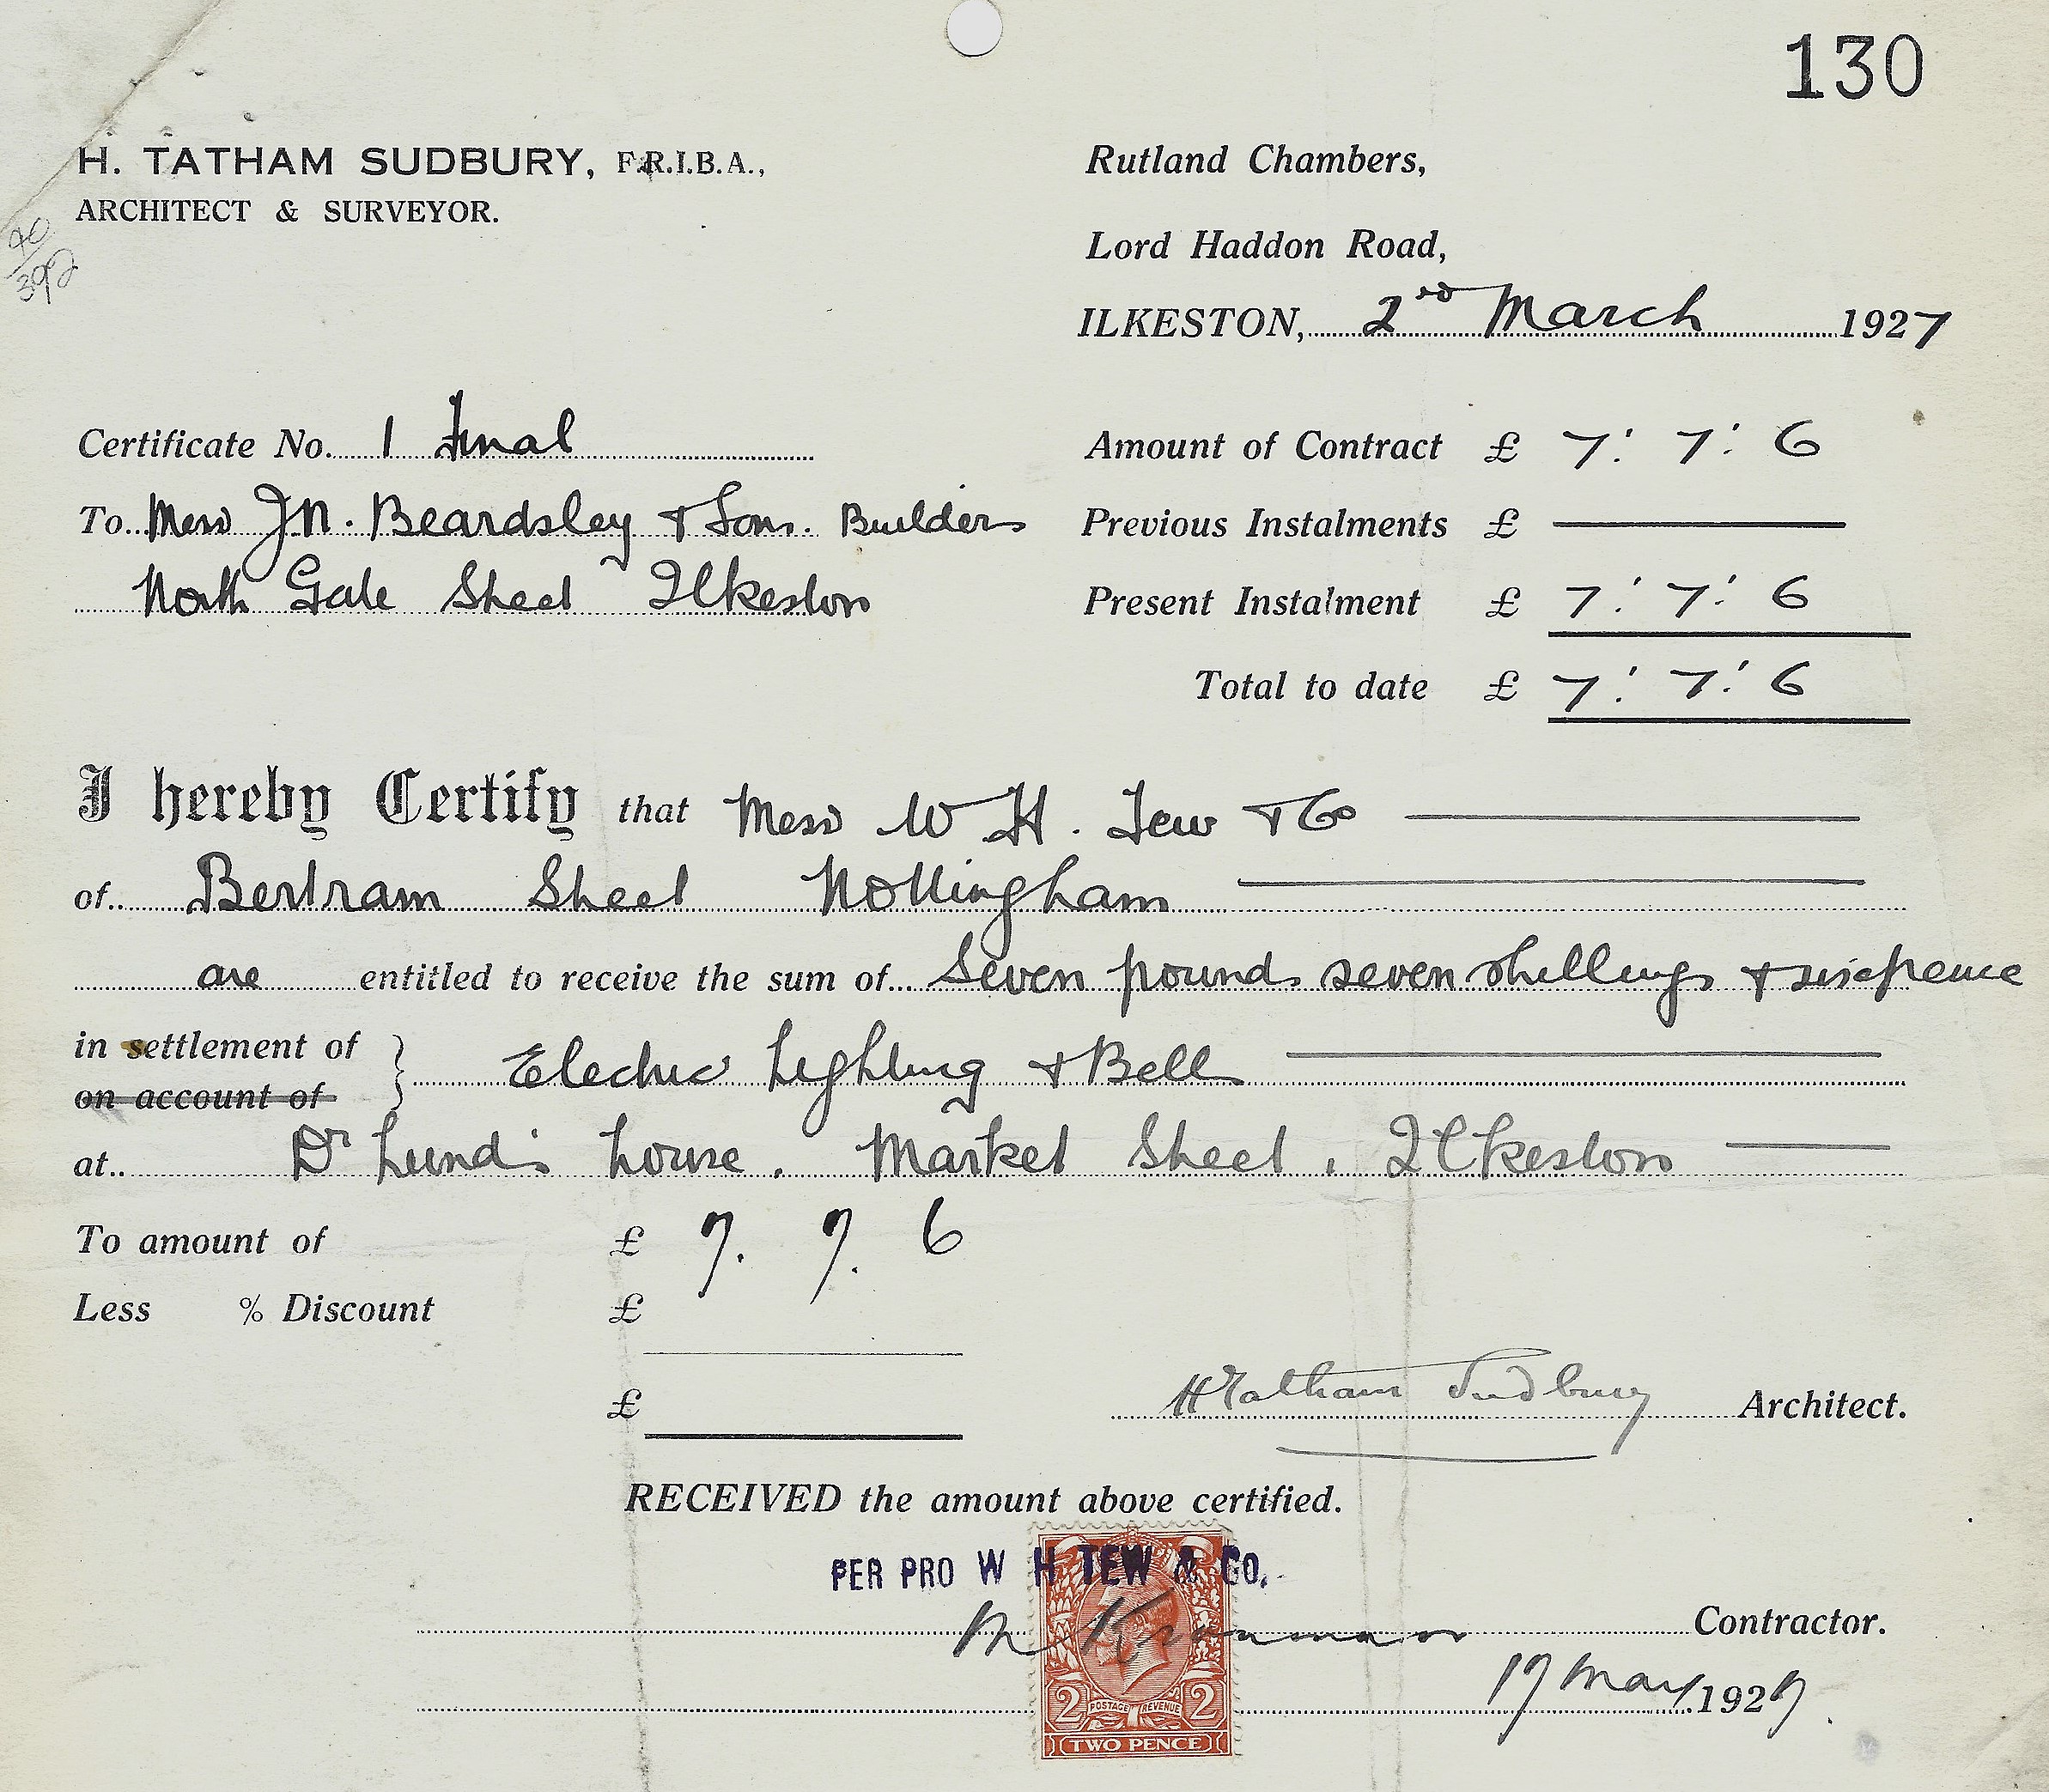 130
H. TATHAM SUDBURY, F.R.I.B.A.,
ARCHITECT & SURVEYOR.
40
392
Rutland Chambers,
Lord Haddon Road,
ILKESTON, 2nd March 1927
Certificate No. 1 Final
To Mess J.N. Beardsley & Sons. Builders
North Gate Street Ilkeston
Amount of Contract £ 7 : 7 : 6
Previous Instalments £
Present Instalment £ 7 : 7 : 6
Total to date £ 7 : 7 : 6
I hereby Certify that Mess W H. Tew & Co
of Bertram Street Nottingham
are entitled to receive the sum of Seven pounds seven shillings & sixpence
in settlement of
on account of
} Electric Lighting & Bells
at Dr Lund's house. Market Street, Ilkeston
To amount of £ 7. 7. 6
Less % Discount £
£
H Tatham Sudbury Architect.
RECEIVED the amount above certified.
PER PRO W H TEW & CO.
Contractor.
17 May 1927.
2 POSTAGE REVENUE 2
TWO PENCE